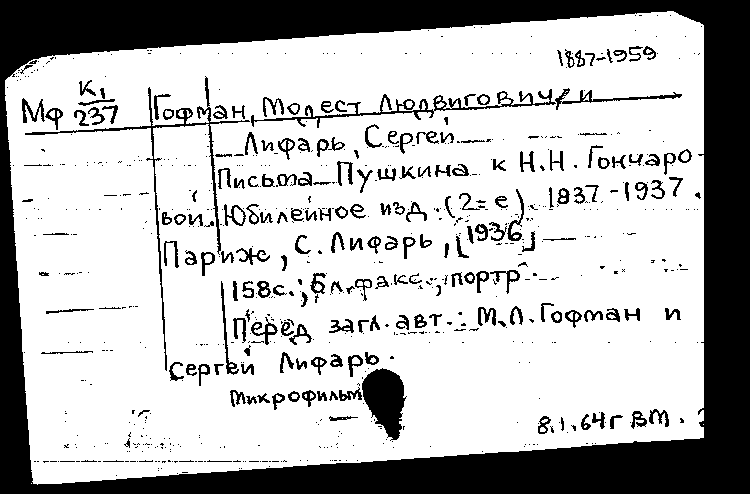 1887-1959
Мф К1/237 Гофман, Модест Людвигович, и
Лифарь, Сергей
Письма Пушкина к Н.Н. Гончаро-
вой. Юбилейное изд. (2=е). 1837-1937.
Париж, С. Лифарь, [1936]
158с.; 8л. факс., портр.
Перед загл. авт.: М.Л. Гофман и
Сергей Лифарь.
Микрофильм
8.1.64г ВМ.